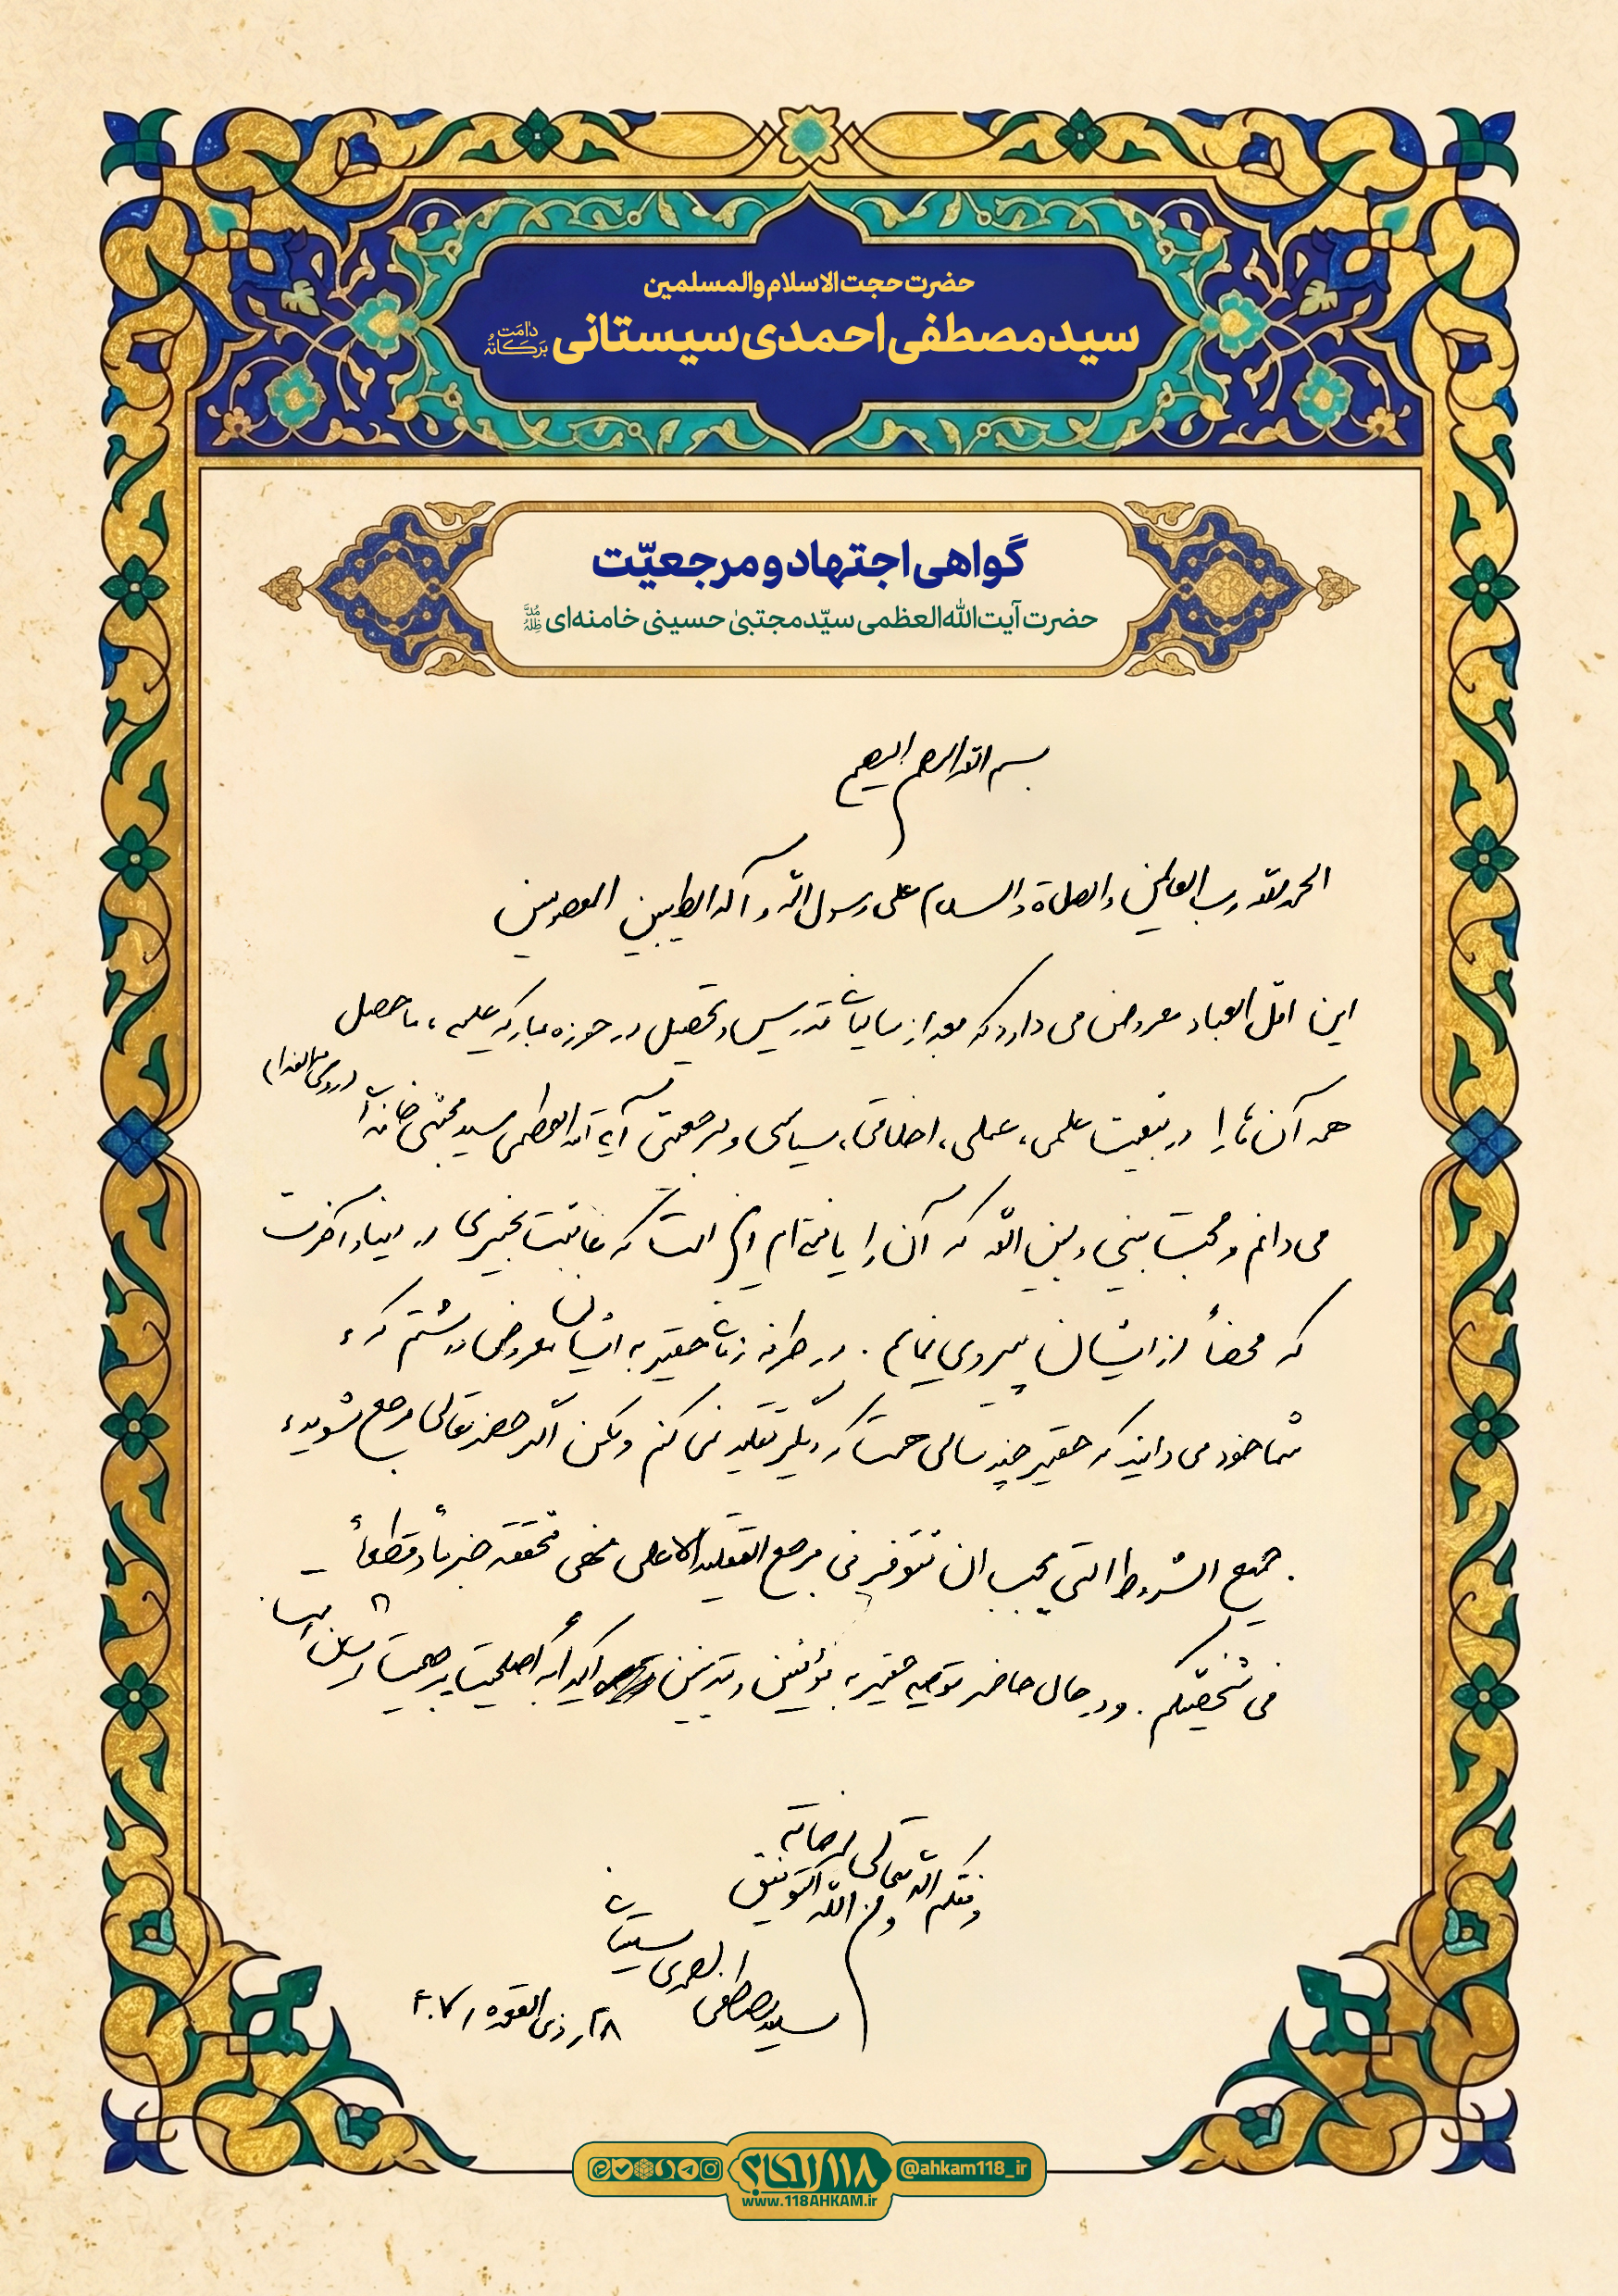 حضرت حجت الاسلام والمسلمین
سید مصطفی احمدی سیستانی دامَت بَرَکاتُهُ
گواهی اجتهاد و مرجعیّت
حضرت آیت‌الله‌العظمی سیّد مجتبیٰ حسینی خامنه‌ای مُدَّ ظِلُّهُ
بسم الله الرحمن الرحیم
الحمد لله رب العالمین و الصلاة و السلام علی رسول الله و آله الطیبین المعصومین
این اقل العباد معروض می دارد که بعد از سالیان تدریس و تحصیل در حوزه مبارکه علمیه، ماحصل
همه آن ها را در تبعیت علمی، عملی، اخلاقی، سیاسی و مرجعیتی آیة الله العظمی سید مجتبی خامنه ای
می دانم و حجت بینی و بین الله که آن را یافته ام این است که عاقبت بخیری در دنیا و آخرت
که محضاً از ایشان پیروی نمایم. در حقیر به ایشان معروض داشتم که
شما خود می دانید که حقیر چند سالی است که دیگر تقلید نمی کنم ولکن اگر حضرتعالی مرجع شوید
جمیع الشروط التی یجب ان تتوفر فی مرجع التقلید الاعلی فهی محققة جزماً و قطعاً
فی شخصیتکم. و در حال حاضر توصیه حقیر به مؤمنین و متدینین اکیداً به اصلحیت مرجعیت ایشان است
وفقکم الله تعالی لمرضاته
و من الله التوفیق
سید مصطفی احمدی سیستانی
۲۸ ذی القعده
@ahkam118_ir
۱۱۸ احکام
www.118AHKAM.ir